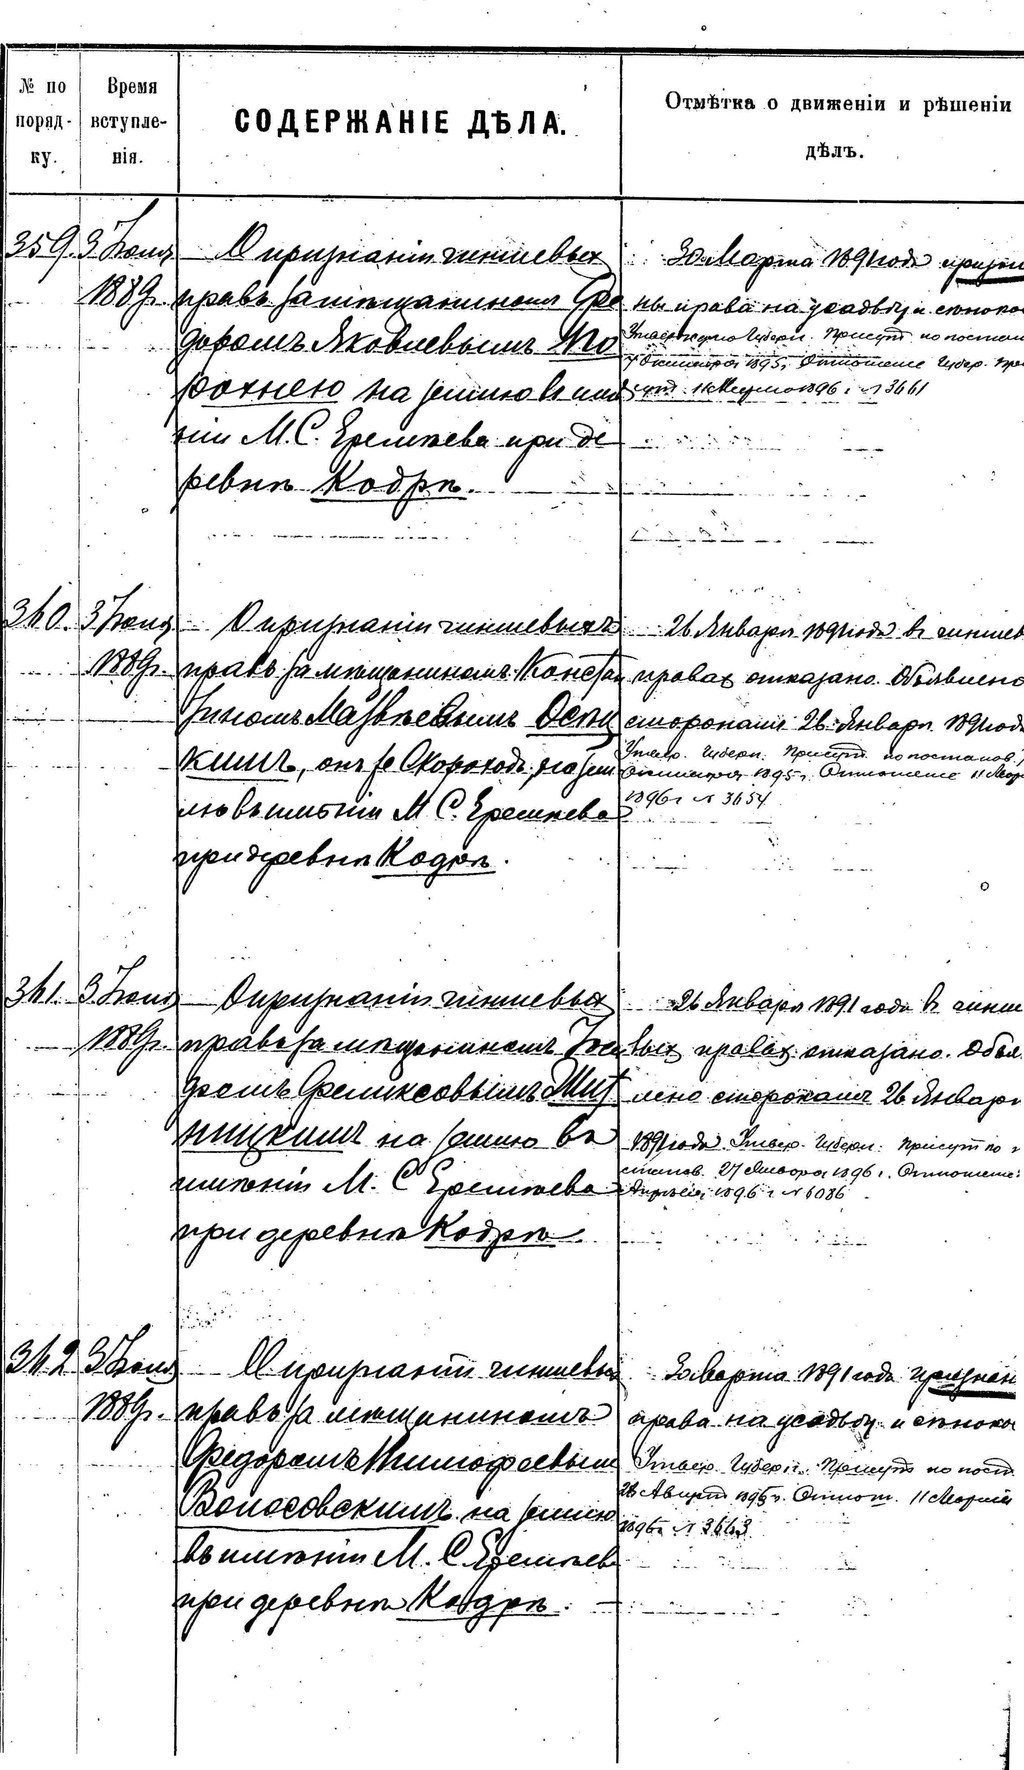 № по поряд- ку.
Время вступле- нія.
СОДЕРЖАНІЕ ДѢЛА.
Отмѣтка о движеніи и рѣшеніи
дѣлъ.
359. 3 Іюня
1889г.
О признаніи чиншевых
правъ за мѣщаниномъ Фе
доромъ Яковлевымъ
на землю въ имѣ
ніи М. С. Еремѣева при де
ревнѣ Кодрѣ.
30 Марта 1891 года призна
ны права на усадьбу и сѣноко
Утверждено Губерн. Присут. по постан
7 Октября 1895г. Отношение Губер. При
сут. 11 Марта 1896 г. № 3661
360. 3 Іюня
1889г.
О признаніи чиншевыхъ
правъ за мѣщаниномъ Констан
тиномъ Матвѣевымъ
кимъ, онъ же Скороходъ, на зем
лю въ имѣніи М. С. Еремѣева
при деревнѣ Кодрѣ.
26 Января 1891 года въ чиншев
правах отказано. Объявлено
сторонамъ 26 Января 1891 года
Утвер. Губерн. Присут. по постанов.
1895г. Отношение 11 Мар
1896 г № 3654
361. 3 Іюня
1889г.
О признаніи чиншевых
правъ за мѣщаниномъ
Феликсовымъ
на землю въ
имѣніи М. С. Еремѣева
при деревнѣ Кодрѣ.
26 Января 1891 года въ чинше
выхъ правах отказано. Объя
лено сторонамъ 26 Январ
1891 года. Утвер. Губерн. Присут по п
станов. 27 Января 1896 г. Отношение
Апрѣля 1896 г № 6086
362 3 Іюня
1889г.
О признаніи чиншевы
правъ за мѣщаниномъ
Федоромъ Тимофеевым
Волосовскимъ на землю
въ имѣніи М. С. Еремѣев
при деревнѣ Кодрѣ.
30 Марта 1891 года признан
права на усадьбу и сѣноко
Утвер. Губерн. Присут по пост.
28 Август 1895г. Отнош. 11 Марта
1896г № 3663